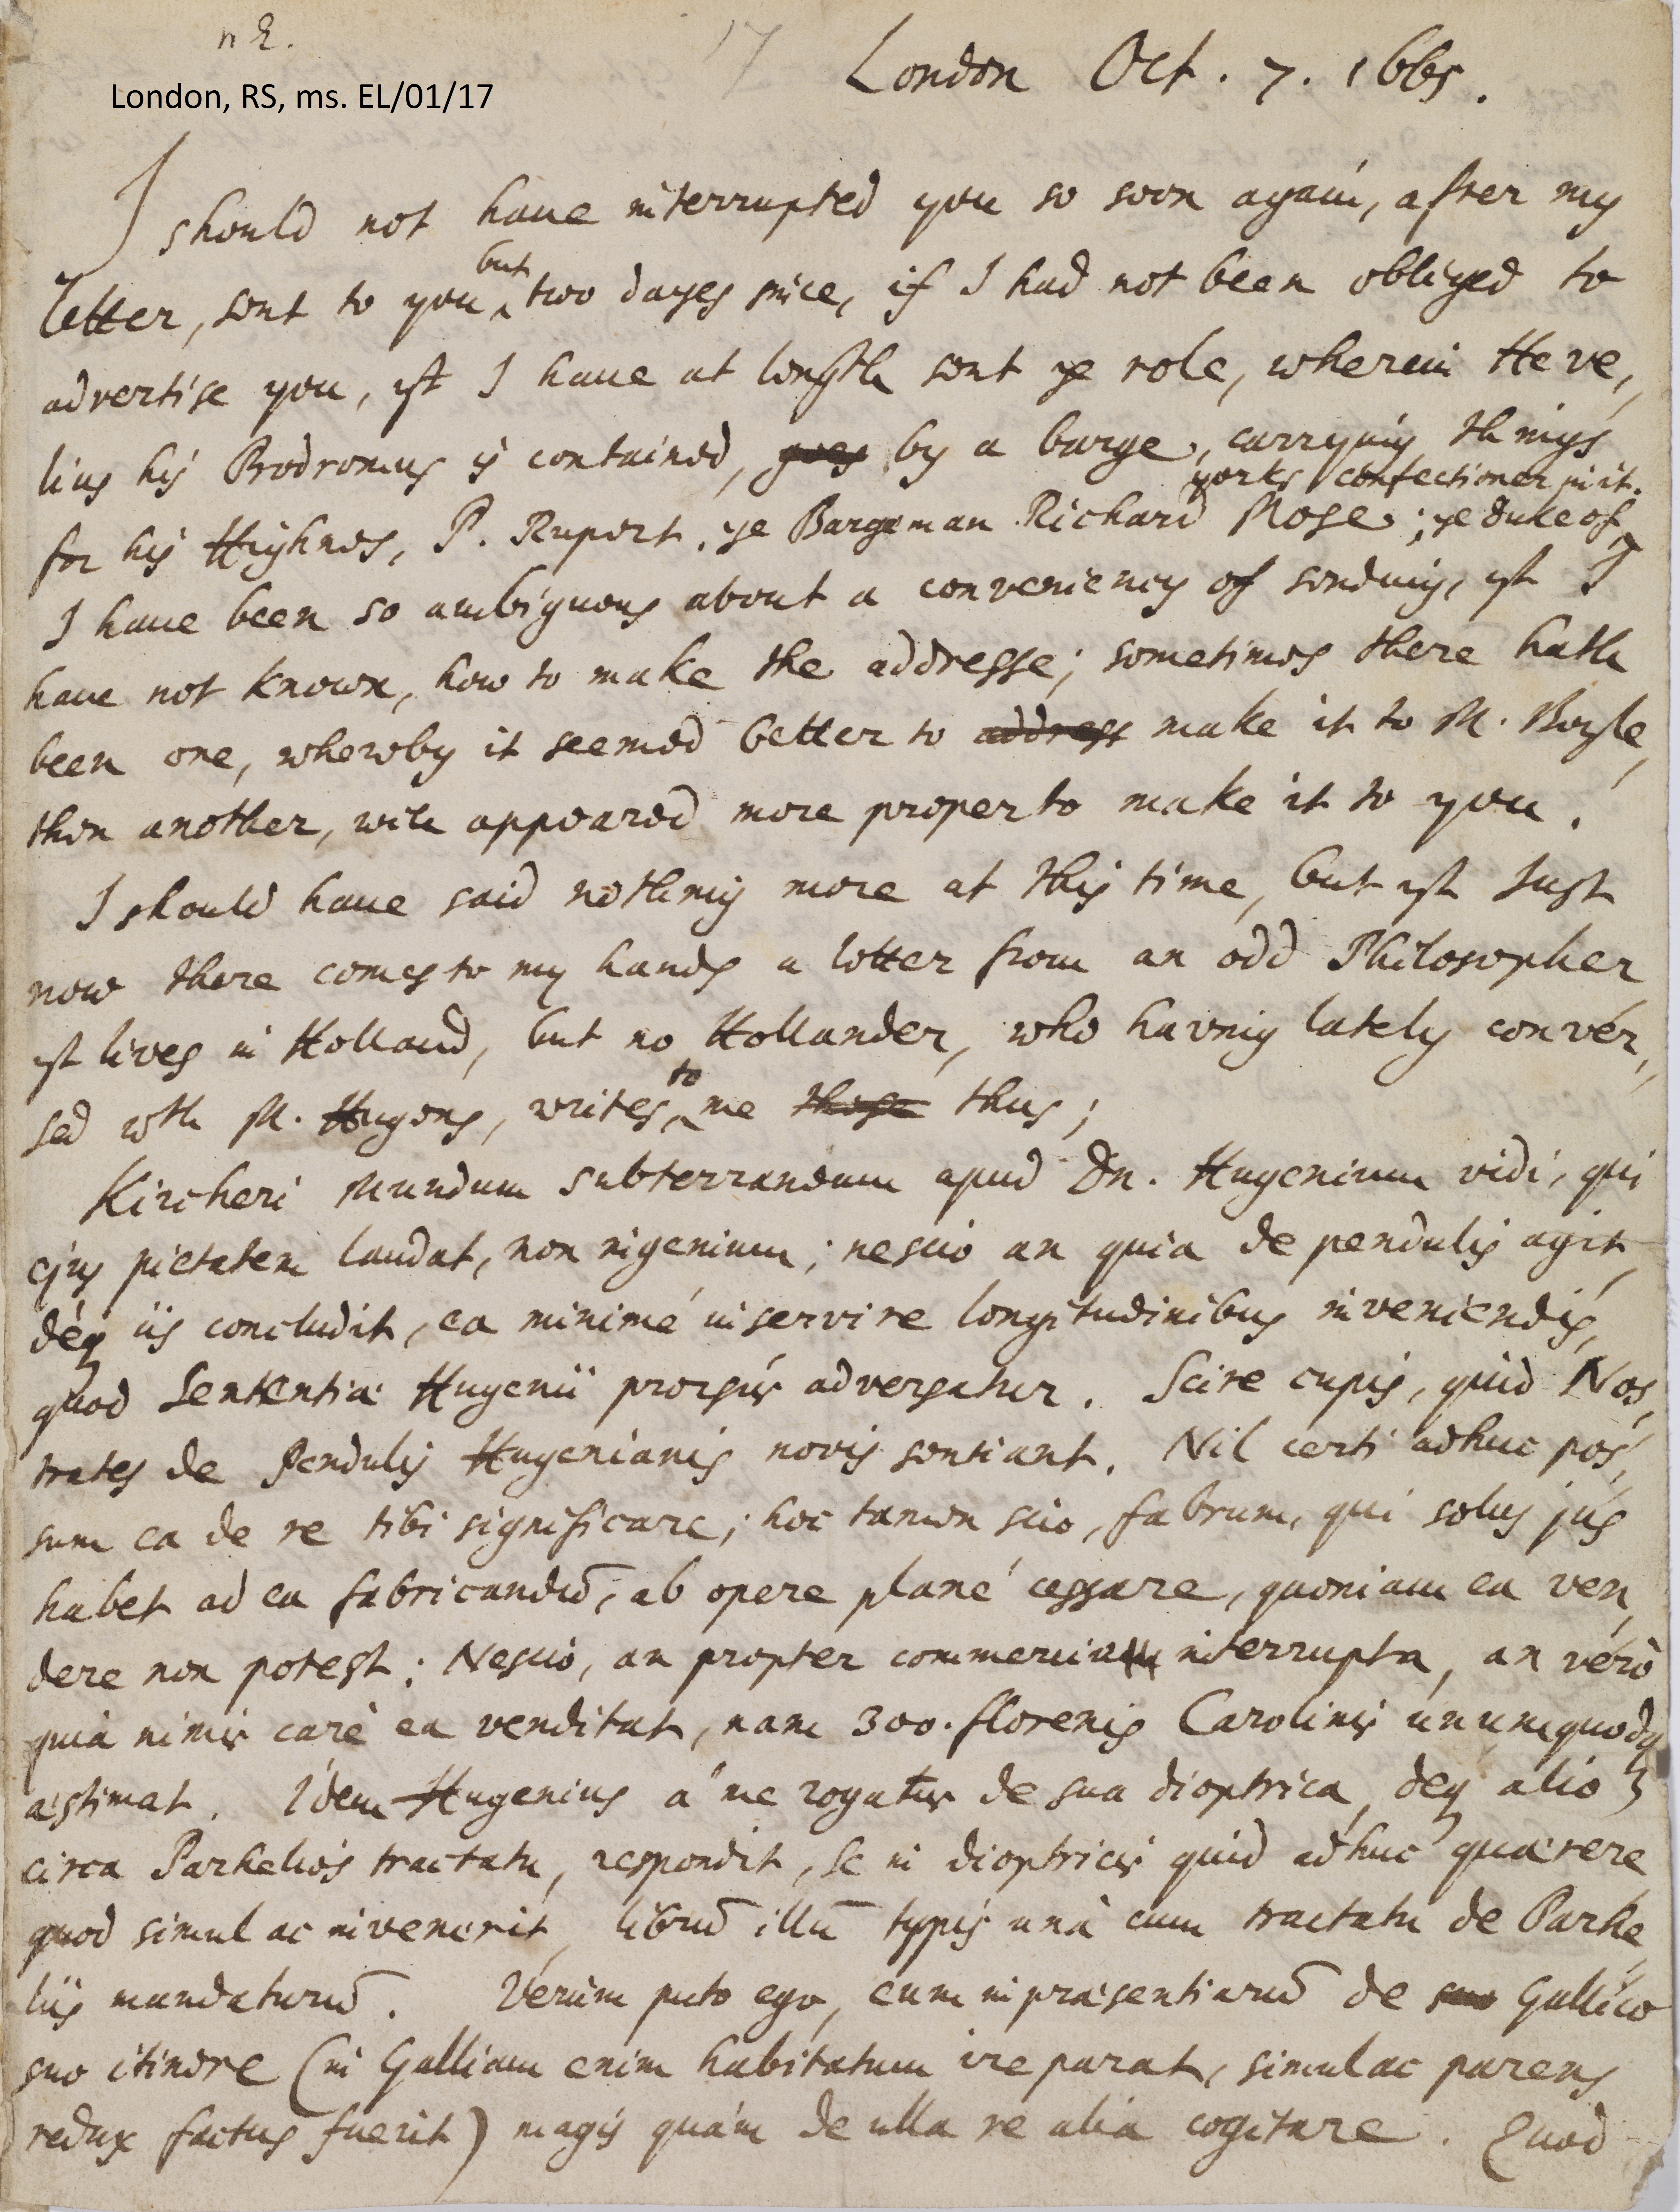 n 2.
17
London, RS, ms. EL/01/17
London Oct. 7. 1665.
I should not have interrupted you so soon again, after my
letter, sent to you but two dayes since, if I had not been obliged to
advertise you, yt I have at length sent ye role, wherein Heve,
lius his Prodromus is contained, goes by a barge, carrying things
for his Highnes, P. Rupert, ye Bargeman Richard Rose; ye duke of
yorks confectioner in it.
I have been so ambiguous about a conveniency of sending, yt I
have not known, how to make the addresse; sometimes there hath
been one, whereby it seemed better to address make it to M. Boyle,
then another, wch appeared more proper to make it to you.
I should have said nothing more at this time, but yt Just
now there comes to my hands a letter from an odd Philosopher
yt lives in Holland, but no Hollander, who having lately conver,
sed wth M. Hugens, writes to me these thus;
Kircheri Mundum subterraneum apud Dn. Hugenium vidi, qui
ejus pietatem laudat, non ingenium; nescio an quia de pendulis agit,
déq iis concludit, ea minimé inservire longitudinibus inveniendis,
quod Sententiæ Hugenii prorsùs adversatur. Scire cupis, quid Nos,
trates de Pendulis Hugenianis novis sentiant. Nil certi adhuc pos,
sum ea de re tibi significare; hoc tamen scio, fabrum, qui solus jus
habet ad ea fabricandū, ab opere plané cessare, quoniam ea ven,
dere non potest: Nescio, an propter commercia interrupta, an verò
quia nimis carè ea venditat, nam 300. florenis Carolinis unumquodq
æstimat. Idem Hugenius à me rogatus de sua dioptrica, deq alio
circa Parhelios tractatu, respondit, se in dioptricis quid adhuc quærere
quod simul ac invenerit, librū illū typis unà cum tractatu de Parhe,
liis mandaturū. Verùm puto ego, eum in præsentiarū de suo Gallico
suo itinere (in Galliam enim habitatum ire parat, simulac parens
redux factus fuerit) magis quàm de ulla re alia cogitare. Quod